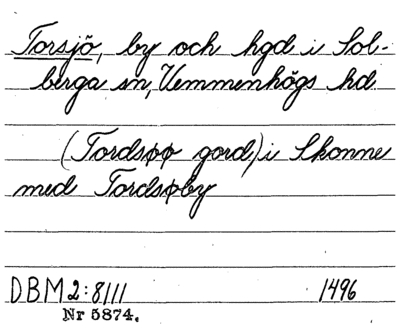 Torsjö, by och hgd i Sol-
berga sn, Vemmenhögs hd
(Tordsøø gord) i Skonne
med Tordsøby
DBM 2:8111 1496
Nr 5874.